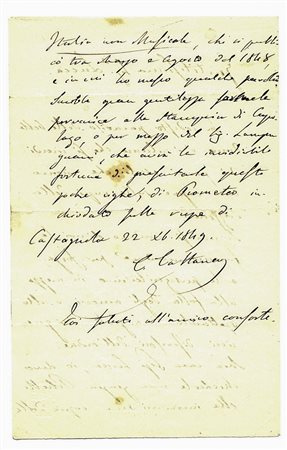 Italia non Musicale, che si pubbli
cò tra marzo e agosto del 1848
e in cui ho messo qualche
gran gentilezza farmele
pervenire alla Stamperia di Capo
lago, o per mezzo del Sig.
che avrà la invidiabile
fortuna di presentarle queste
poche righe, di Prometeo in
chiodato sulla rupe di
Castagnola 22 Xb 1849.
C. Cattaneo
saluti all'amico consorte.